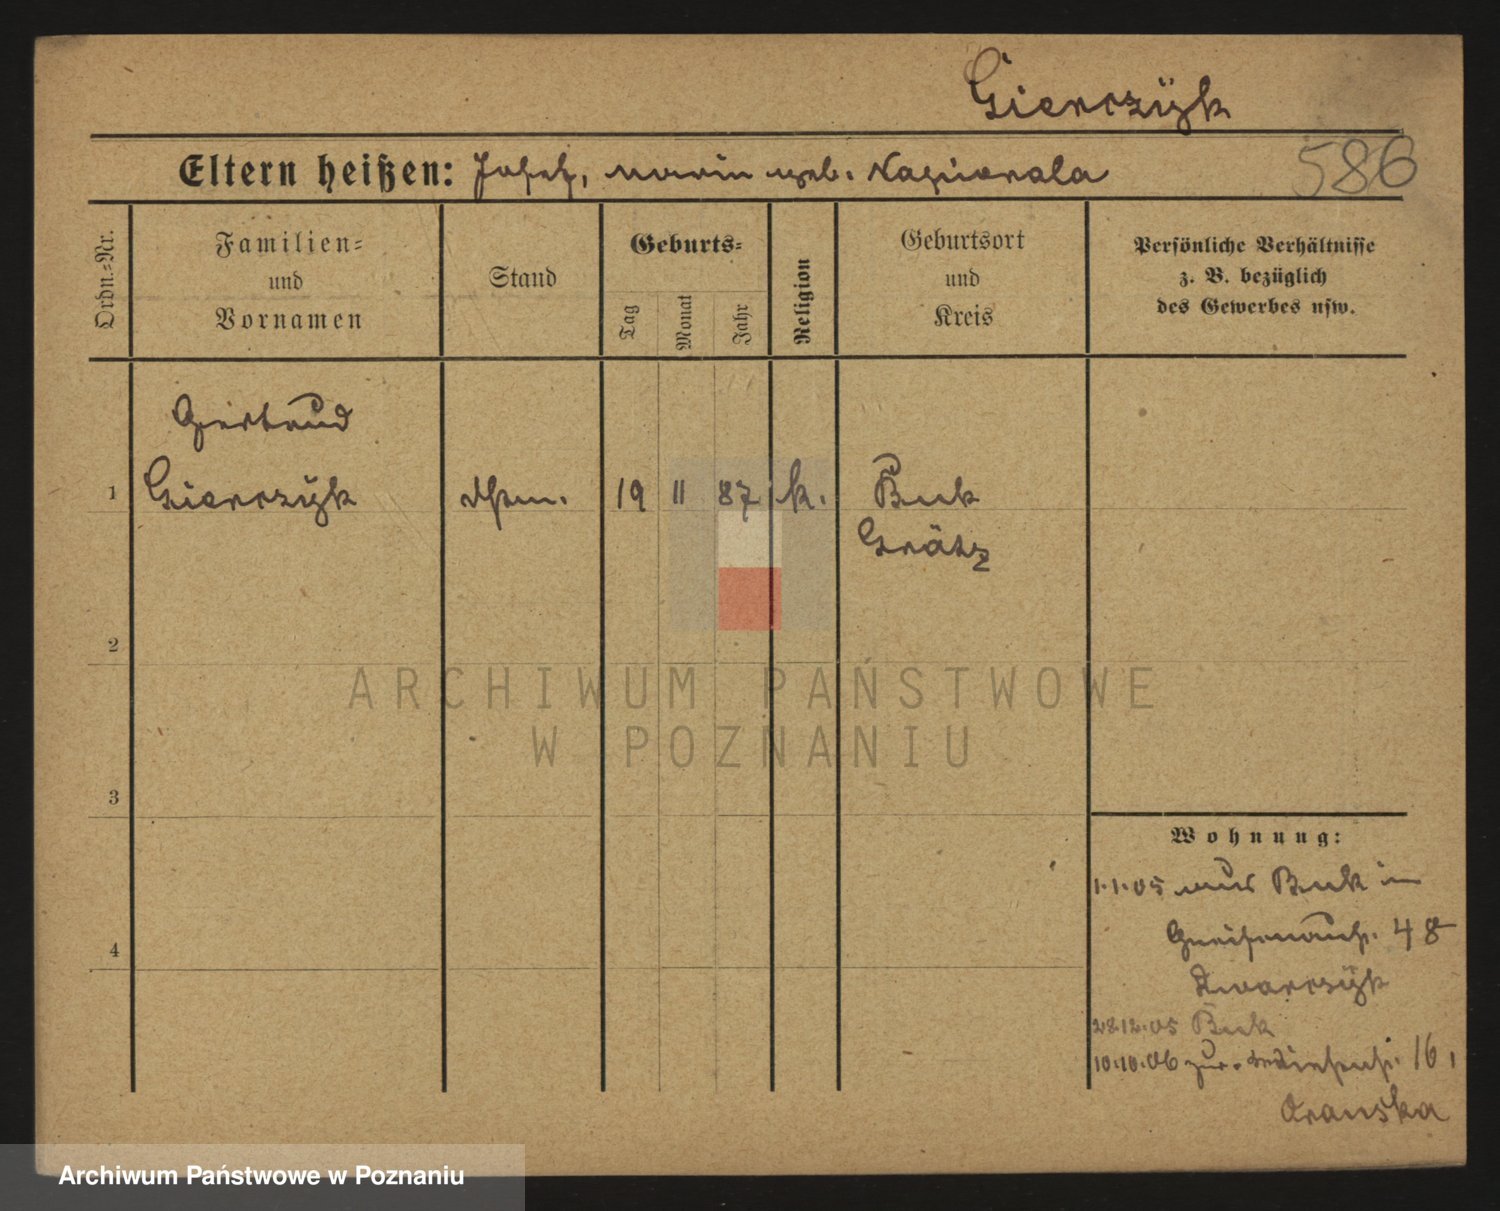 Gierczÿk
586
Eltern heißen: Josef, Marie geb. Napierala
Ordn.=Nr.
Familien=
und
Vornamen
Stand
Geburts=
Tag
Monat
Jahr
Religion
Geburtsort
und
Kreis
Persönliche Verhältnisse
z. B. bezüglich
des Gewerbes usw.
Gertrud
1 Gierczÿk 19 11 87 k. Buk
Grätz
2
3
4
ARCHIWUM PAŃSTWOWE
W POZNANIU
Wohnung:
1.1.05 aus Buk in
Gneisenaustr. 48
Kwarczÿk
28.12.05 Buk
10.10.06 zur. 16,
Aranska
Archiwum Państwowe w Poznaniu